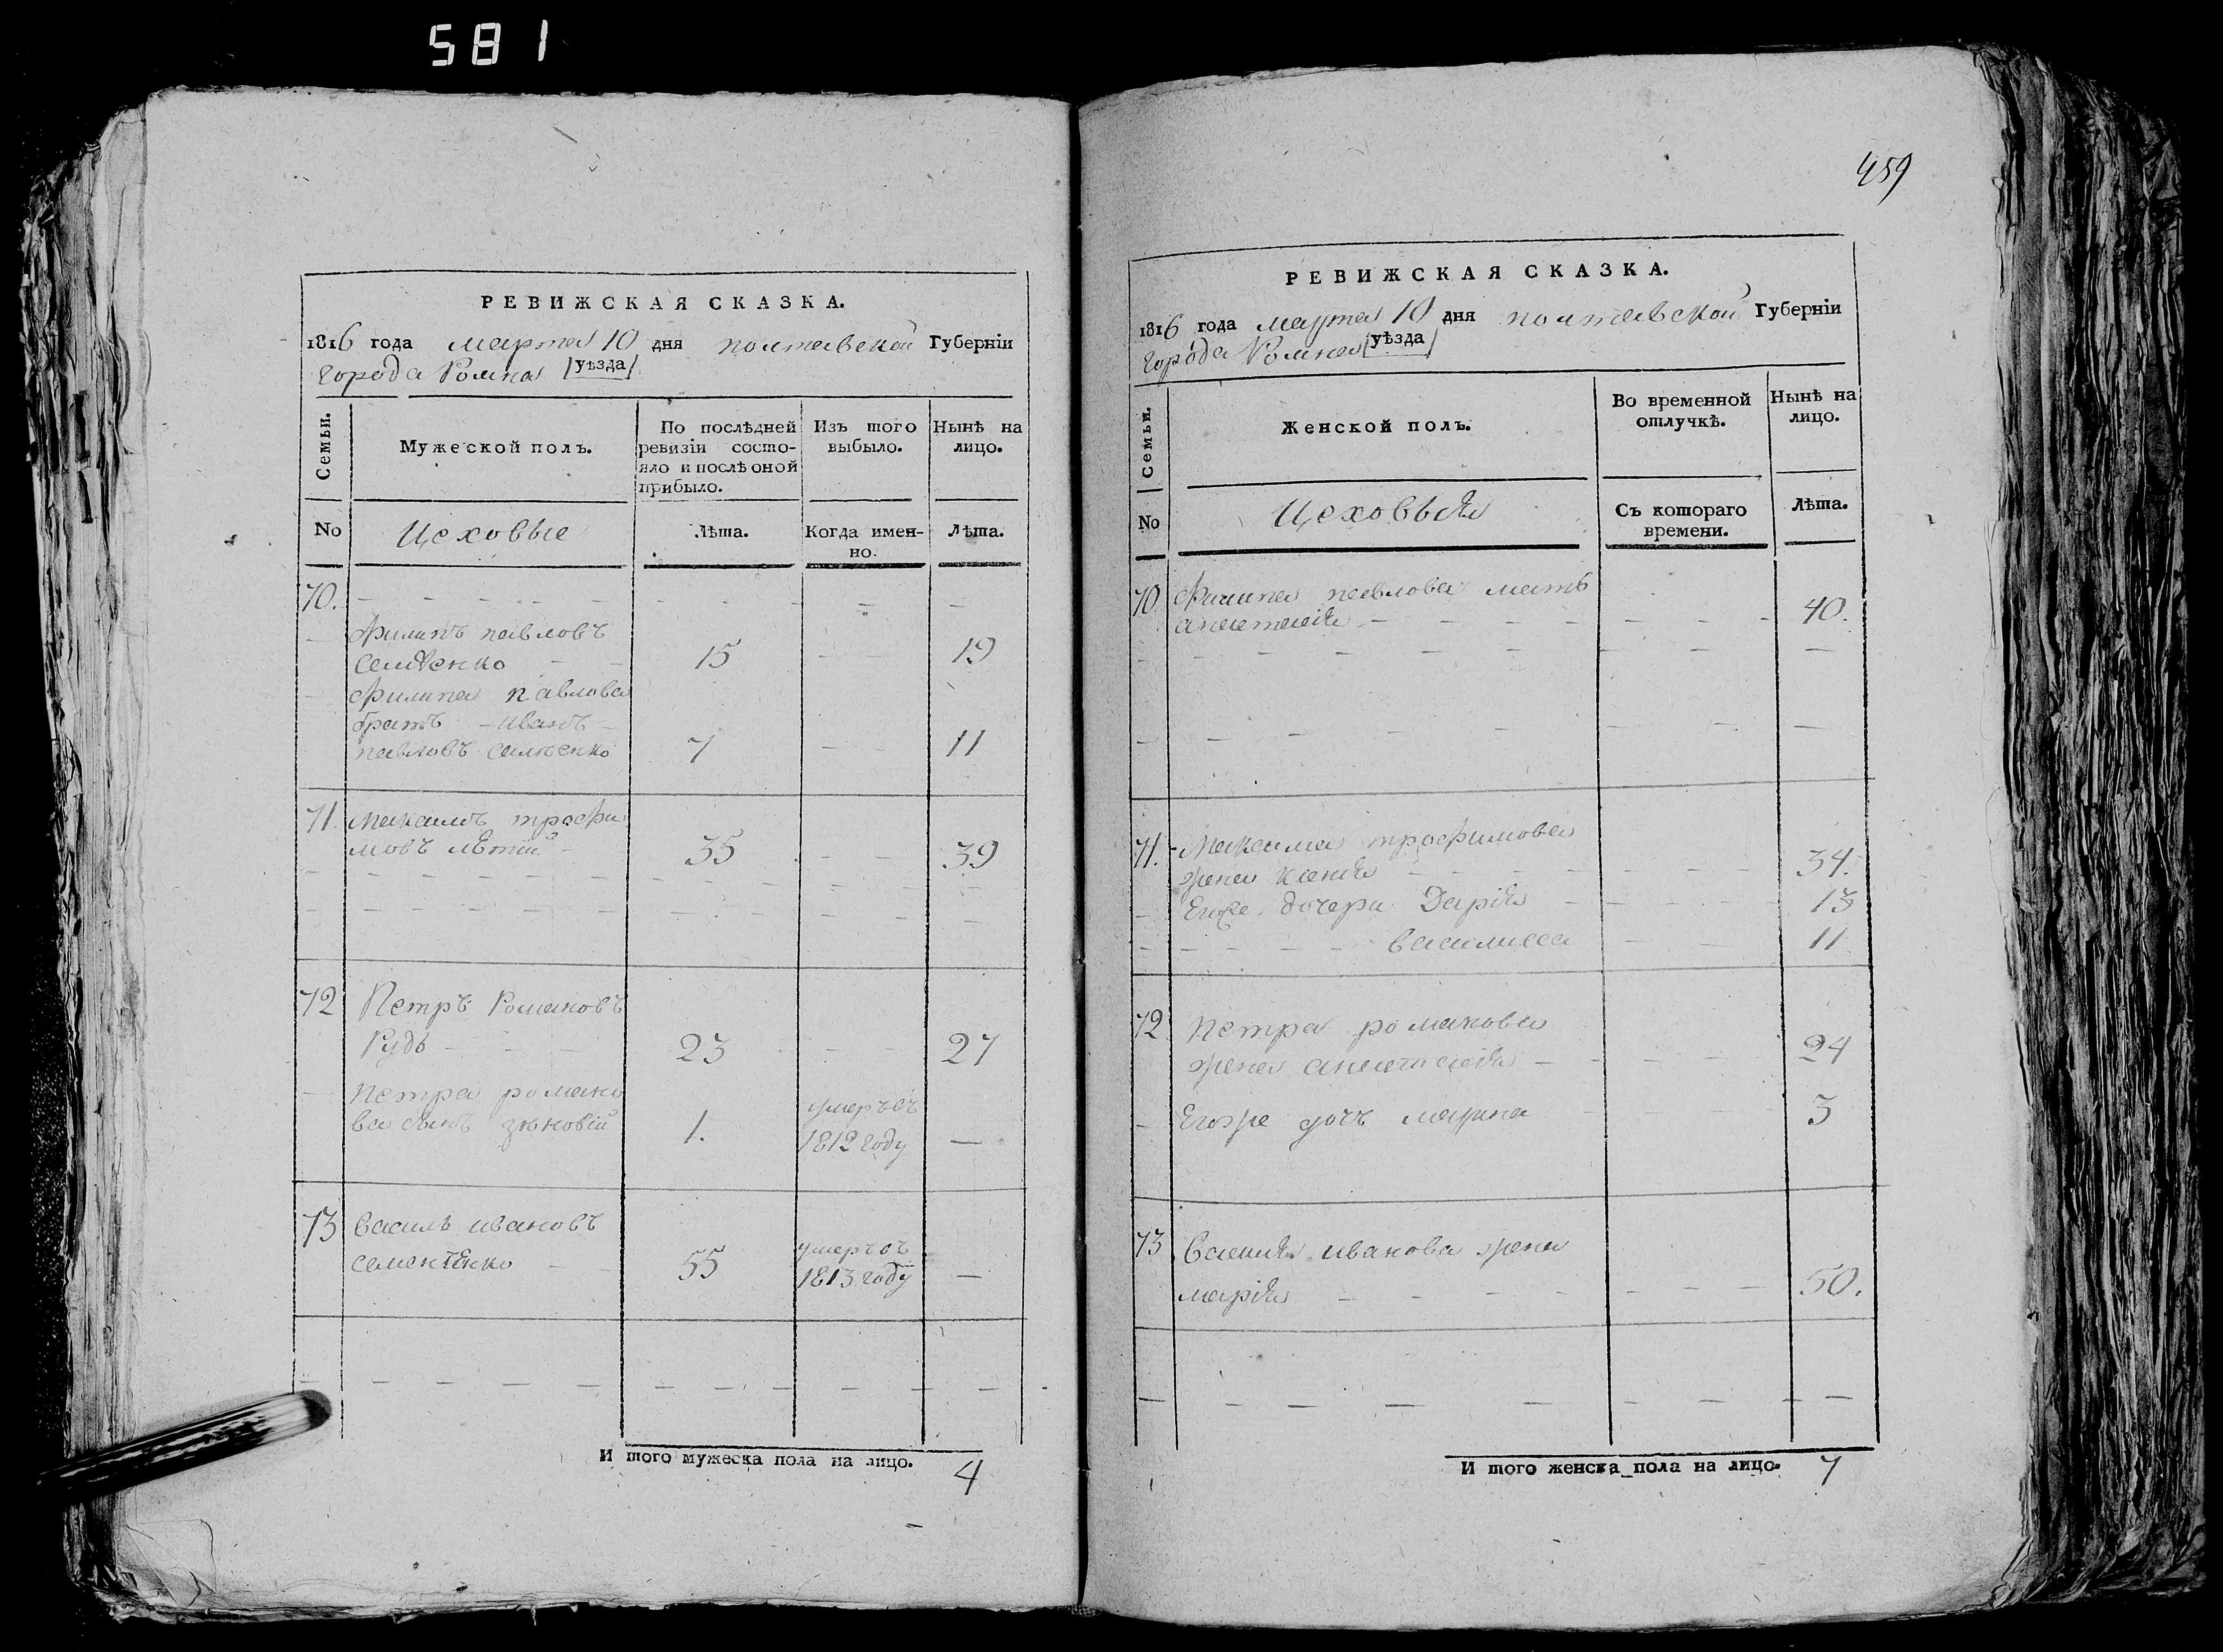 581
РЕВИЖСКАЯ СКАЗКА.
1816 года марта 10 дня полтавской Губерніи
города Ромна уѣзда
Семьи.
Мужеской полъ.
По послѣдней ревизіи состо-
яло и послѣ оной
прибыло.
Изъ того выбыло.
Нынѣ на лицо.
No
Цеховые
Лѣта.
Когда имен-
но.
Лѣта.
70.
Филипъ павловъ
15 19
Филипа павлова
братъ Иванъ
павловъ 7 11
71. Максимъ трофи
мовъ 35 39
72 Петръ Романовъ
Рудь 23 27
Петра романо
ва сынъ зѣновій 1. умеръ въ
1812 году —
73 Василь ивановъ
семенченко 55 умеръ въ
1813 году —
И того мужеска пола на лицо. 4
459
РЕВИЖСКАЯ СКАЗКА.
1816 года марта 10 дня полтавской Губерніи
города Ромна уѣзда
Семьи.
Женской полъ.
Во временной
отлучкѣ.
Нынѣ на
лицо.
No
Цеховыя
Съ котораго
времени.
Лѣта.
70. Филипа павлова мать
40.
71. Максима трофимова
жена ксенія 34.
Егоже дочери Дарія 13
василиса 11
72 Петра романова
жена анастасія 24
Егоже дочь марина 3
73 Василя иванова жена
марія 50.
И того женска пола на лицо. 7